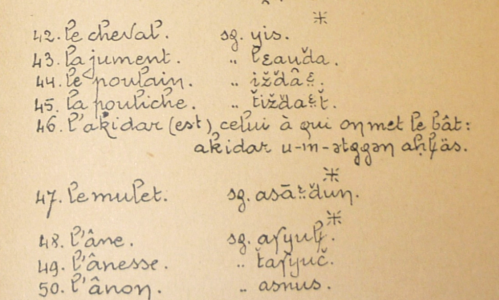 42. le cheval. sg. yis.
43. la jument. „ lεauđa.
44. le poulain. „ iždāε.
45. la pouliche. „ tiždaεt.
46. l'akidar (est) celui à qui on met le bât :
akidar u-m-ətggən
47. le mulet. sg.
48. l'âne. sg.
49. l'ânesse. „
50. l'ânon. „ asnus.